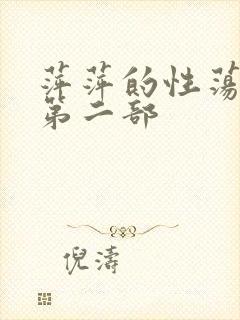 萍萍的性荡
第二部
倪涛